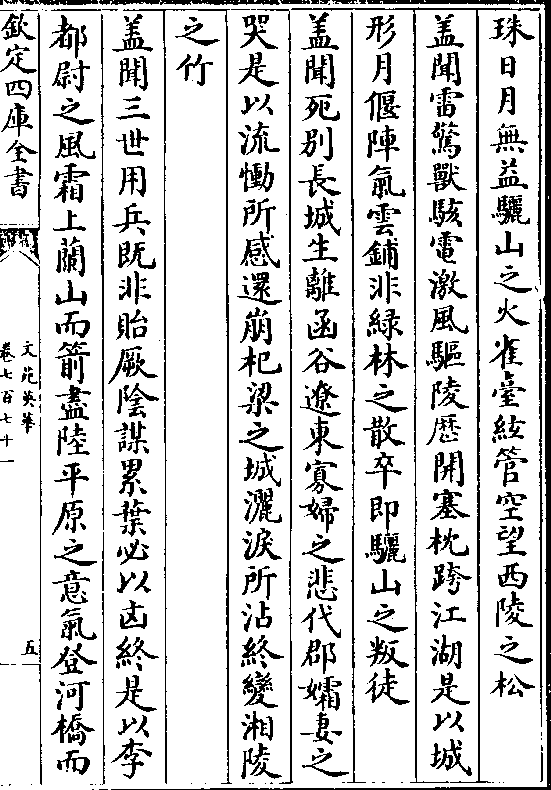 珠日月無益驪山之火雀臺絃管空望西陵之松
蓋聞雷驚獸駭電激風驅陵歷開塞枕跨江湖是以城
形月偃陣氣雲鋪非綠林之散卒即驪山之叛徒
蓋聞死別長城生離函谷遼東寡婦之悲代郡孀妻之
哭是以流慟所感還崩杞梁之城灑淚所沾終變湘陵
之竹
蓋聞三世用兵既非貽厥陰謀累葉必以凶終是以李
都尉之風霜上蘭山而箭盡陸平原之意氣登河橋而
欽定四庫全書
文苑英華
卷七百七十一
五